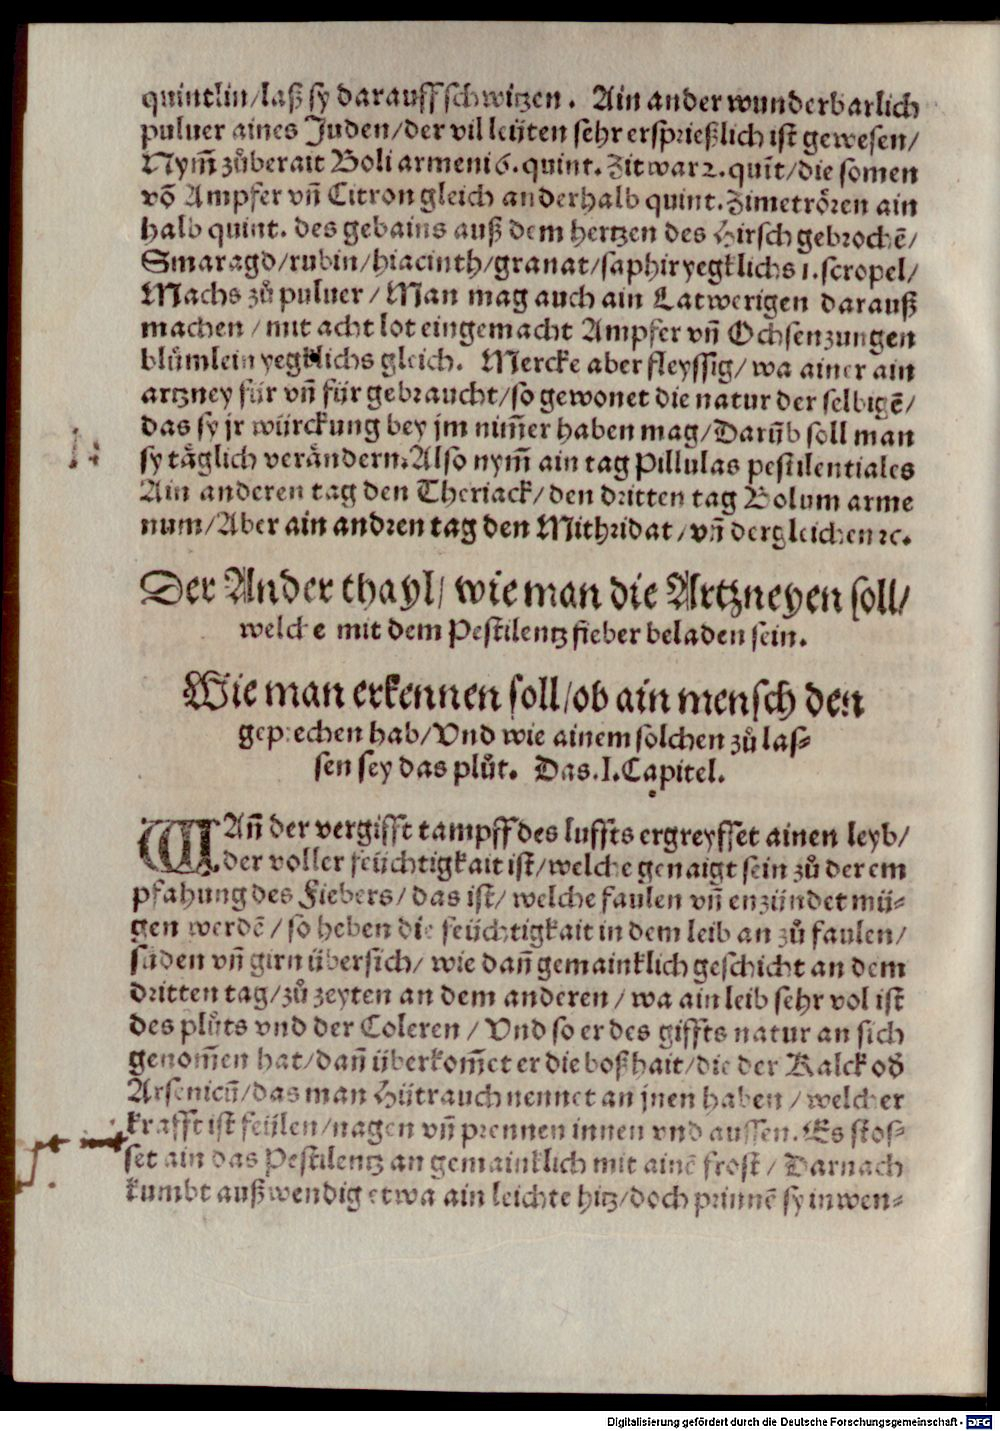 quintlin/laß sy darauff schwitzen. Ain ander wunderbarlich
puluer aines Juden/der vil leüten sehr ersprießlich ist gewesen/
Nym̃ zůberait Boli armeni 6.quint. Zitwar 2.quĩt/die somen
võ Ampfer vñ Citron gleich anderhalb quint. Zimetrören ain
halb quint. des gebains auß dem hertzen des Hirsch gebrochẽ/
Smaragd/rubin/hiacinth/granat/saphir yegklichs 1.scropel/
Machs zů puluer/Man mag auch ain Latwerigen darauß
machen/mit acht lot eingemacht Ampfer vñ Ochsenzungen
blůmlein yegklichs gleich. Mercke aber fleyssig/wa ainer ain
artzney für vñ für gebraucht/so gewonet die natur der selbigẽ/
das sy jr würckung bey jm nim̃er haben mag/Darũb soll man
sy täglich verändern. Also nym̃ ain tag Pillulas pestilentiales
Ain anderen tag den Theriack/den dritten tag Bolum arme
num/Aber ain andren tag den Mithridat/vñ dergleichen ꝛc.
Der Ander thayl/wie man die Artzneyen soll/
welche mit dem Pestilentz fieber beladen sein.
Wie man erkennen soll/ob ain mensch den
geprechen hab/Vnd wie ainem solchen zů las⸗
sen sey das plůt. Das.I.Capitel.
WAñ der vergifft tampff des luffts ergreyffet ainen leyb/
der voller feüchtigkait ist/welche genaigt sein zů der em
pfahung des Fiebers/das ist/welche faulen vñ enzündet mü⸗
gen werdẽ/so heben die feüchtigkait in dem leib an zů faulen/
süden vñ girn übersich/wie dañ gemainklich geschicht an dem
dritten tag/zů zeyten an dem anderen/wa ain leib sehr vol ist
des plůts vnd der Coleren/Vnd so er des giffts natur an sich
genom̃en hat/dañ überkom̃et er die boßhait/die der Kalck oð
Arsenicũ/das man Hütrauch nennet an jnen haben/welcher
krafft ist feülen/nagen vñ prennen innen vnd aussen. Es stos⸗
set ain das Pestilentz an gemainklich mit ainẽ frost/Darnach
kumbt außwendig etwa ain leichte hitz/doch prinnẽ sy inwen⸗
Digitalisierung gefördert durch die Deutsche Forschungsgemeinschaft - DFG